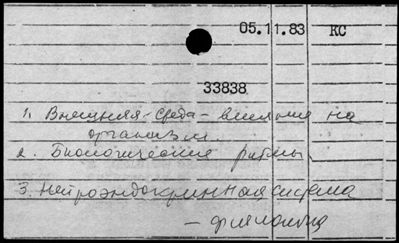 05.11.83 КС
33838
1. Внешняя среда - влияние на
организм.
2. Биологические ритмы
3. Нейроэндокринная система
— физиология